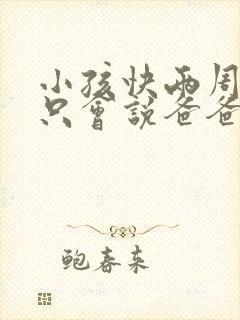 小孩快两周
只會説爸爸
鲍春来